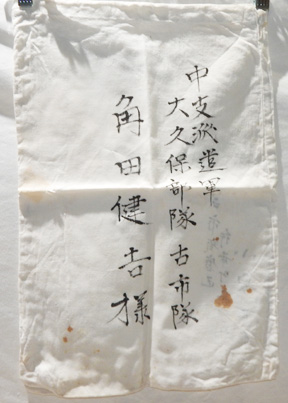 中支派遣軍
大久保部隊古市隊
角田健吉様